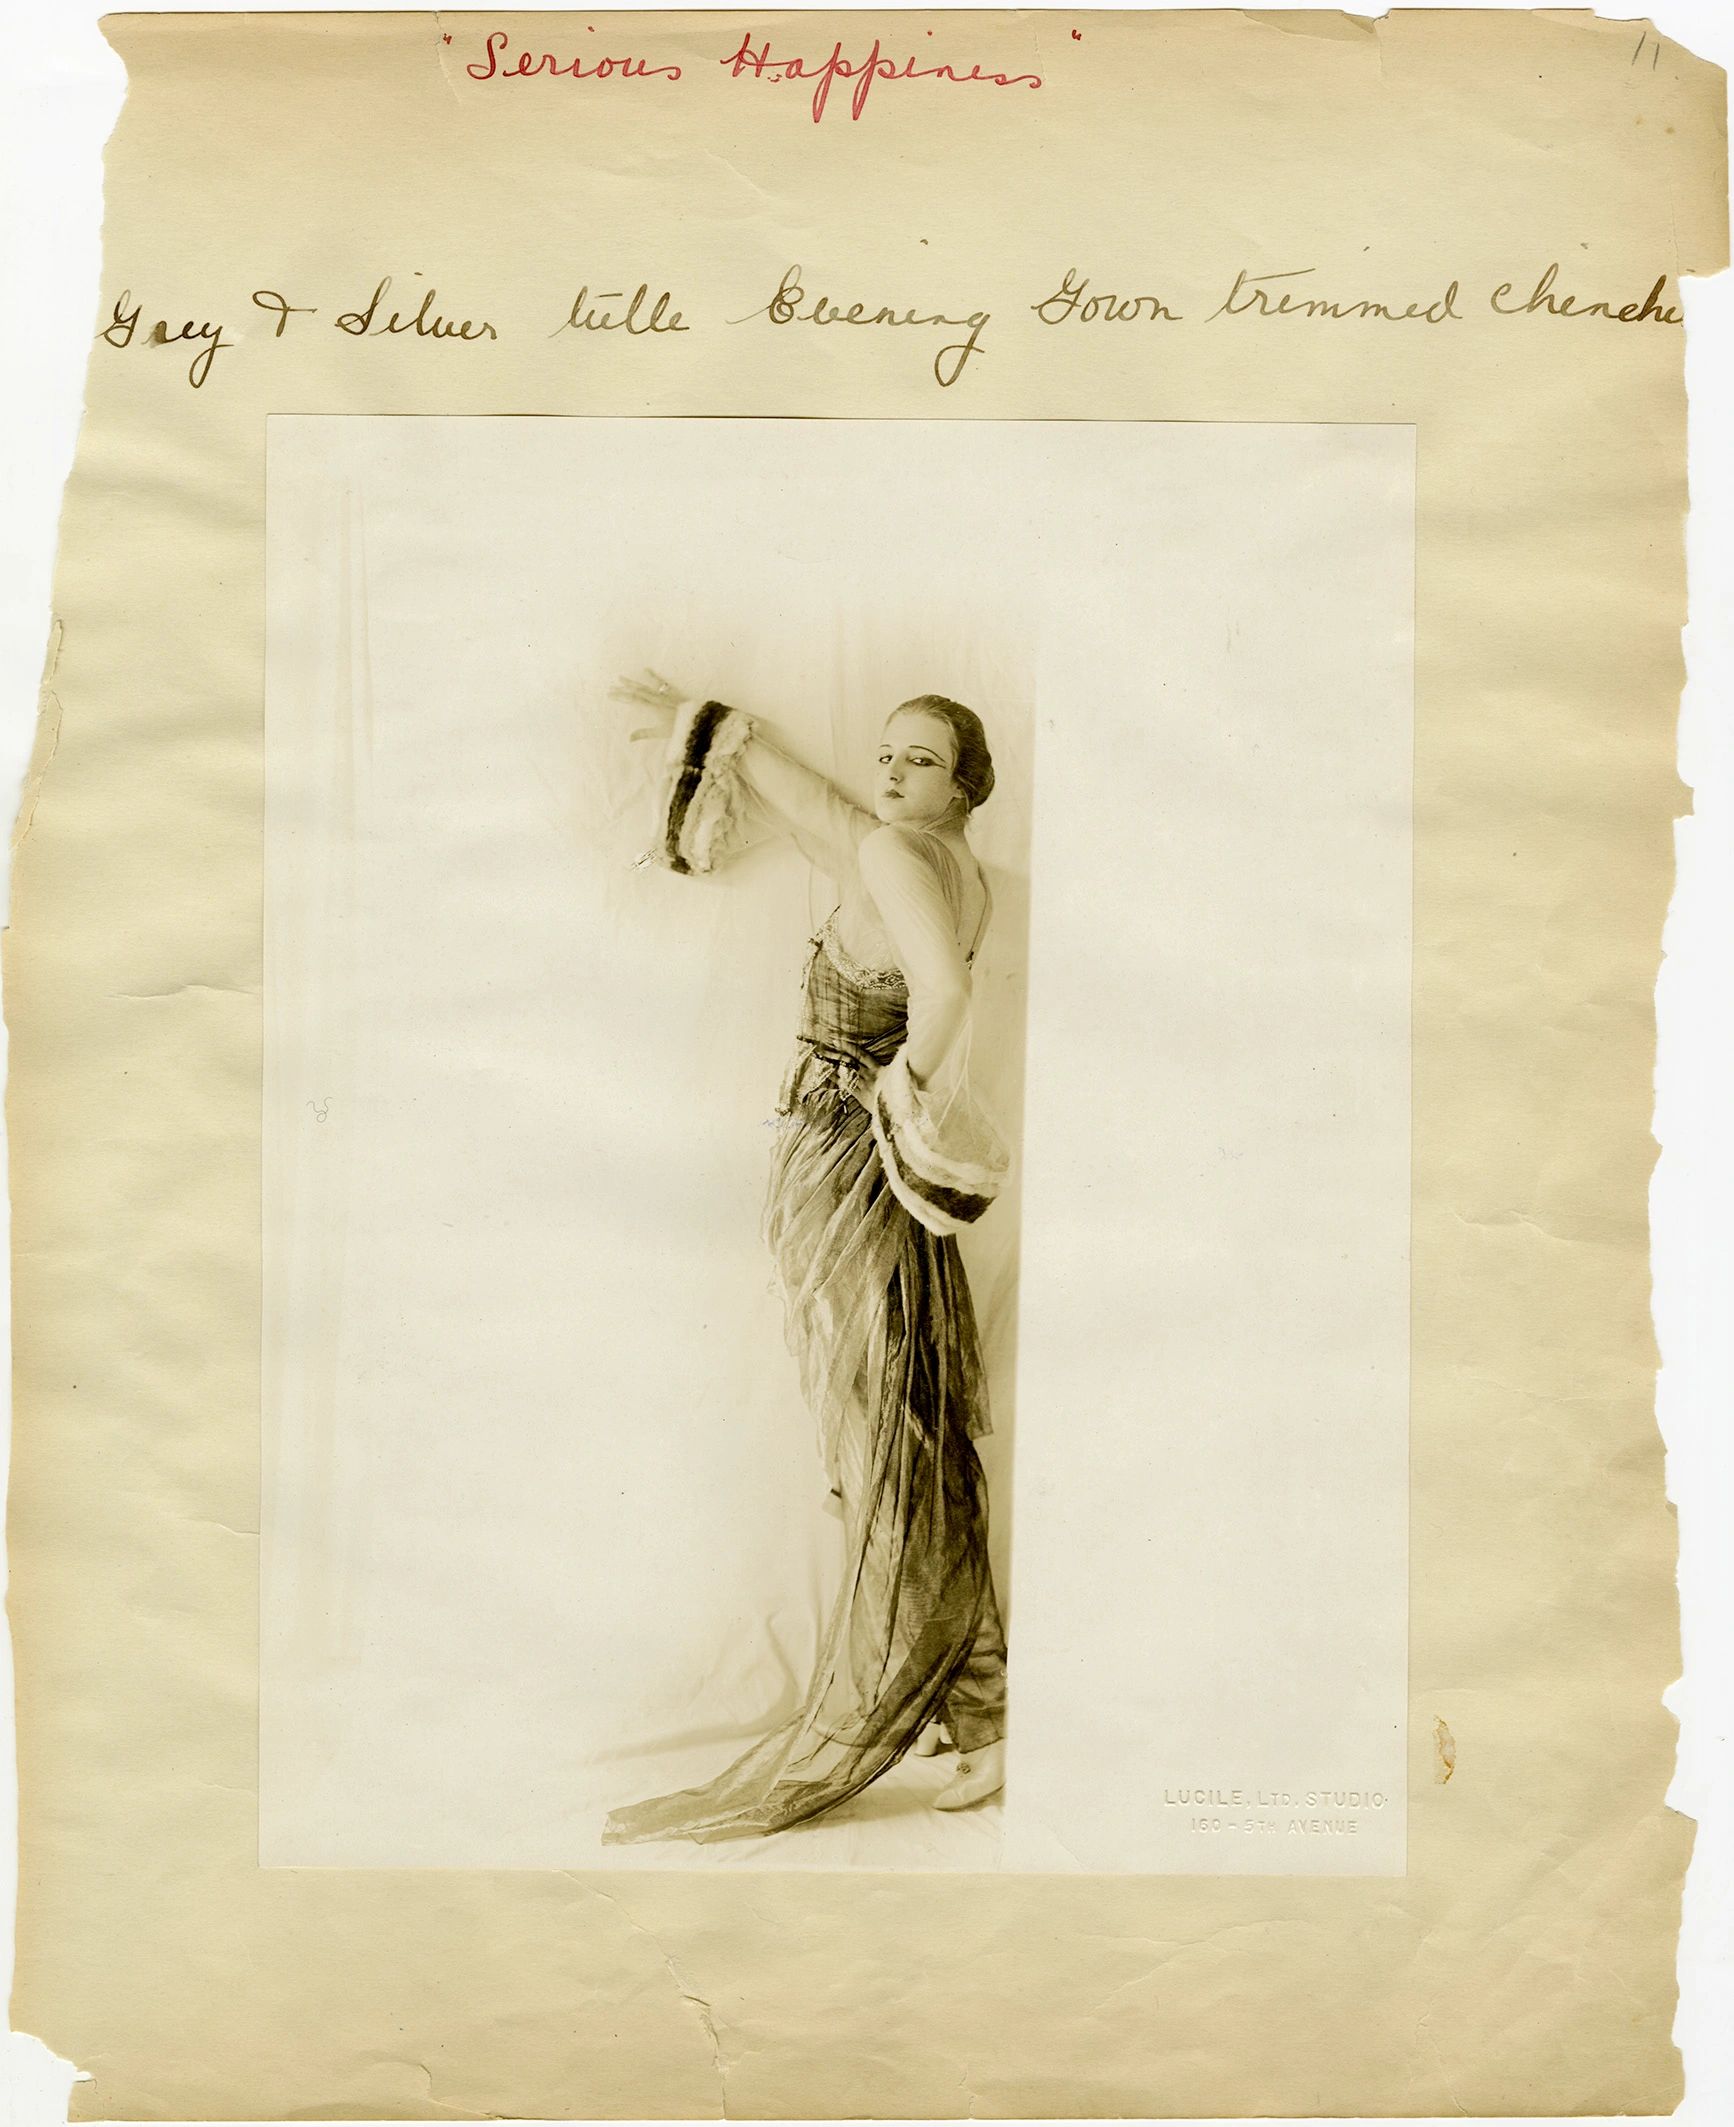 "Serious Happiness"
11
Grey & Silver tulle Evening Gown trimmed chinchi
LUCILE, LTD. STUDIO
160 - 5TH AVENUE